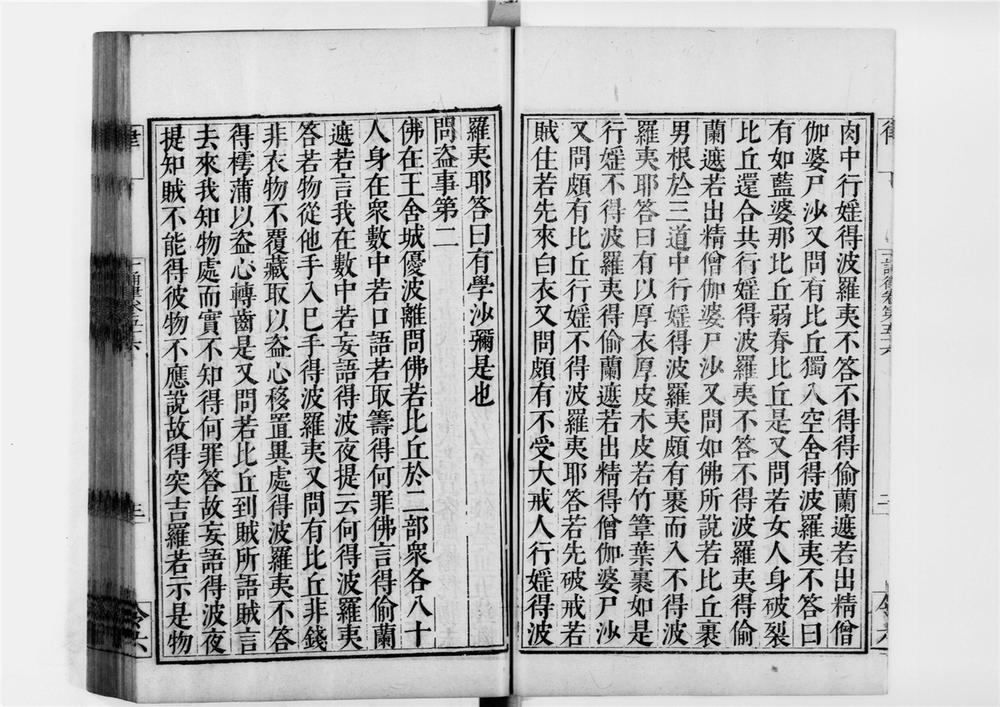 肉中行婬得波羅夷不答不得得偷蘭遮若出精僧
伽婆尸沙又問有比丘獨入空舍得波羅夷不答曰
有如藍婆那比丘弱脊比丘是又問若女人身破裂
比丘還合共行婬得波羅夷不答不得波羅夷得偷
蘭遮若出精僧伽婆尸沙又問如佛所說若比丘裹
男根於三道中行婬得波羅夷頗有裹而入不得波
羅夷耶答曰有以厚衣厚皮木皮若竹葦葉裹如是
行婬不得波羅夷得偷蘭遮若出精得僧伽婆尸沙
又問頗有比丘行婬不得波羅夷耶答若先破戒若
賊住若先來白衣又問頗有不受大戒人行婬得波
羅夷耶答曰有學沙彌是也
問盗事第二
佛在王舍城優波離問佛若比丘於二部衆各八十
人身在衆數中若口語若取籌得何罪佛言得偷蘭
遮若言我在數中若妄語得波夜提云何得波羅夷
答若物從他手入巳手得波羅夷又問有比丘非錢
非衣物不覆藏取以盗心移置異處得波羅夷不答
得樗蒲以盗心轉齒是又問若比丘到賊所語賊言
去來我知物處而實不知得何罪答故妄語得波夜
提知賊不能得彼物不應說故得突吉羅若示是物